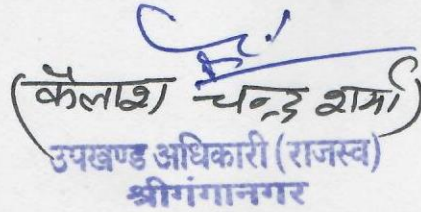 (कैलाश चन्द्र शर्मा)
उपखण्ड अधिकारी (राजस्व)
श्रीगंगानगर